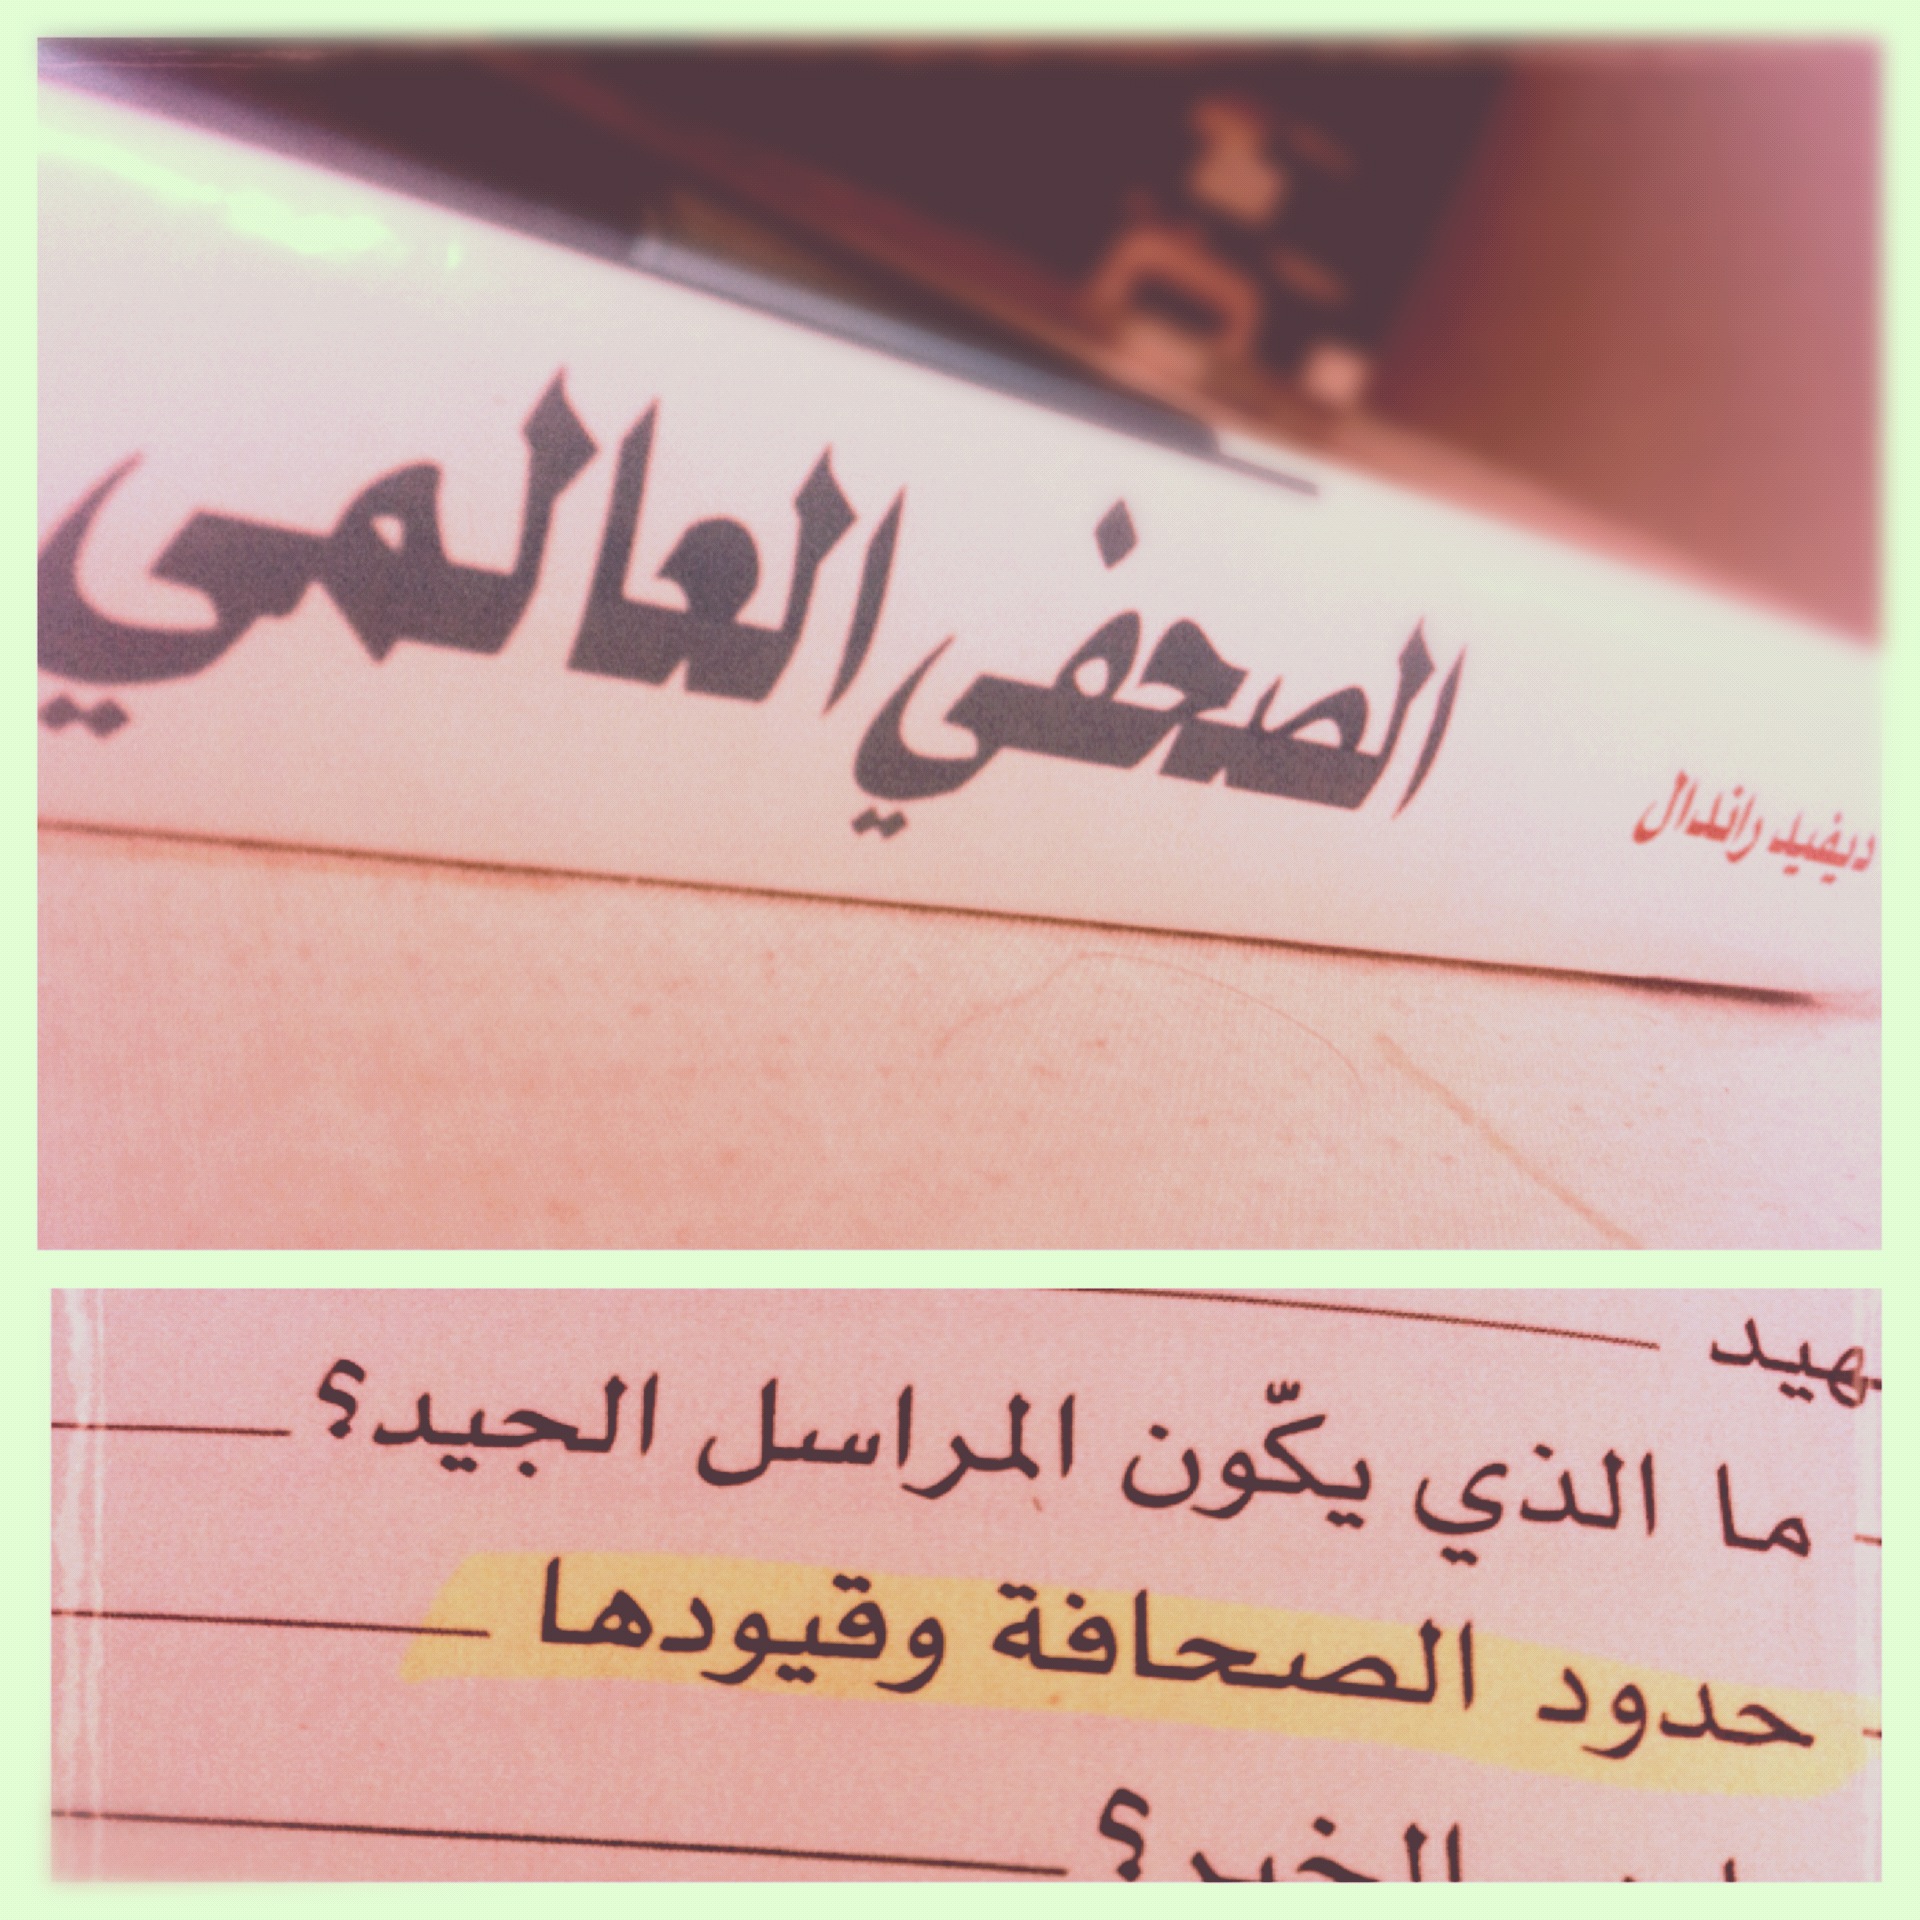 الصحفي العالمي
ديفيد راندال
ما الذي يكّون المراسل الجيد؟
حدود الصحافة وقيودها
الخبر؟